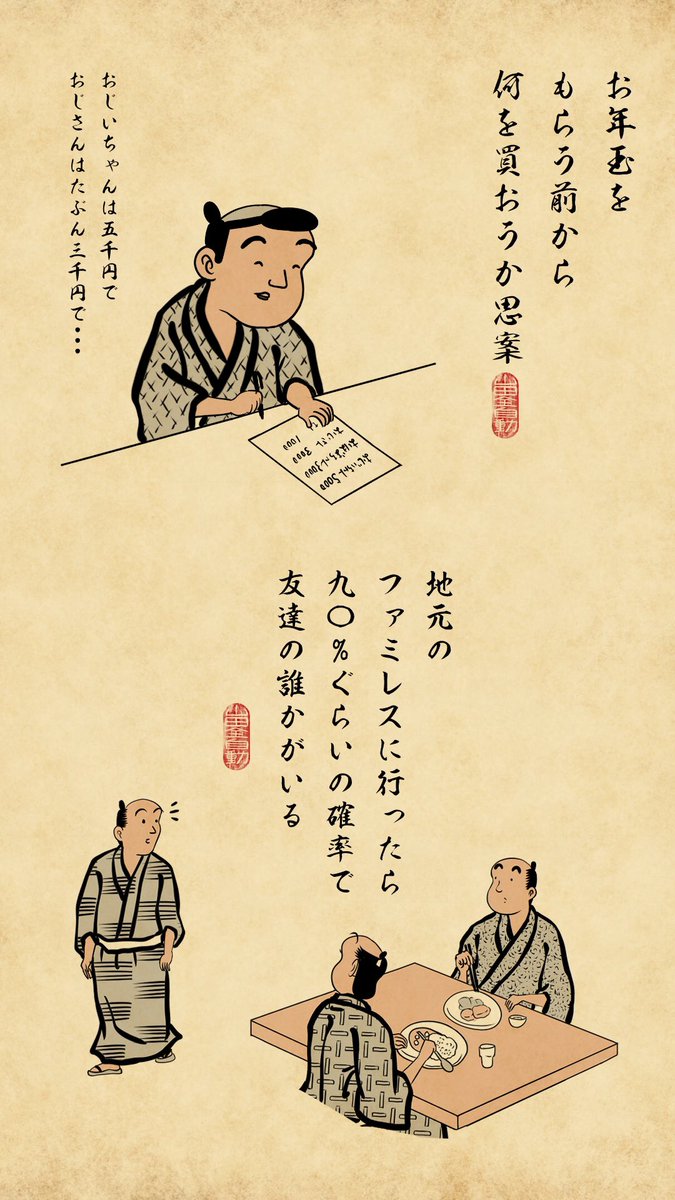 お年玉を
もらう前から
何を買おうか思案
おじいちゃんは五千円で
おじさんはたぶん三千円で・・・
1000
3000
3000
5000
地元の
ファミレスに行ったら
九〇％ぐらいの確率で
友達の誰かがいる